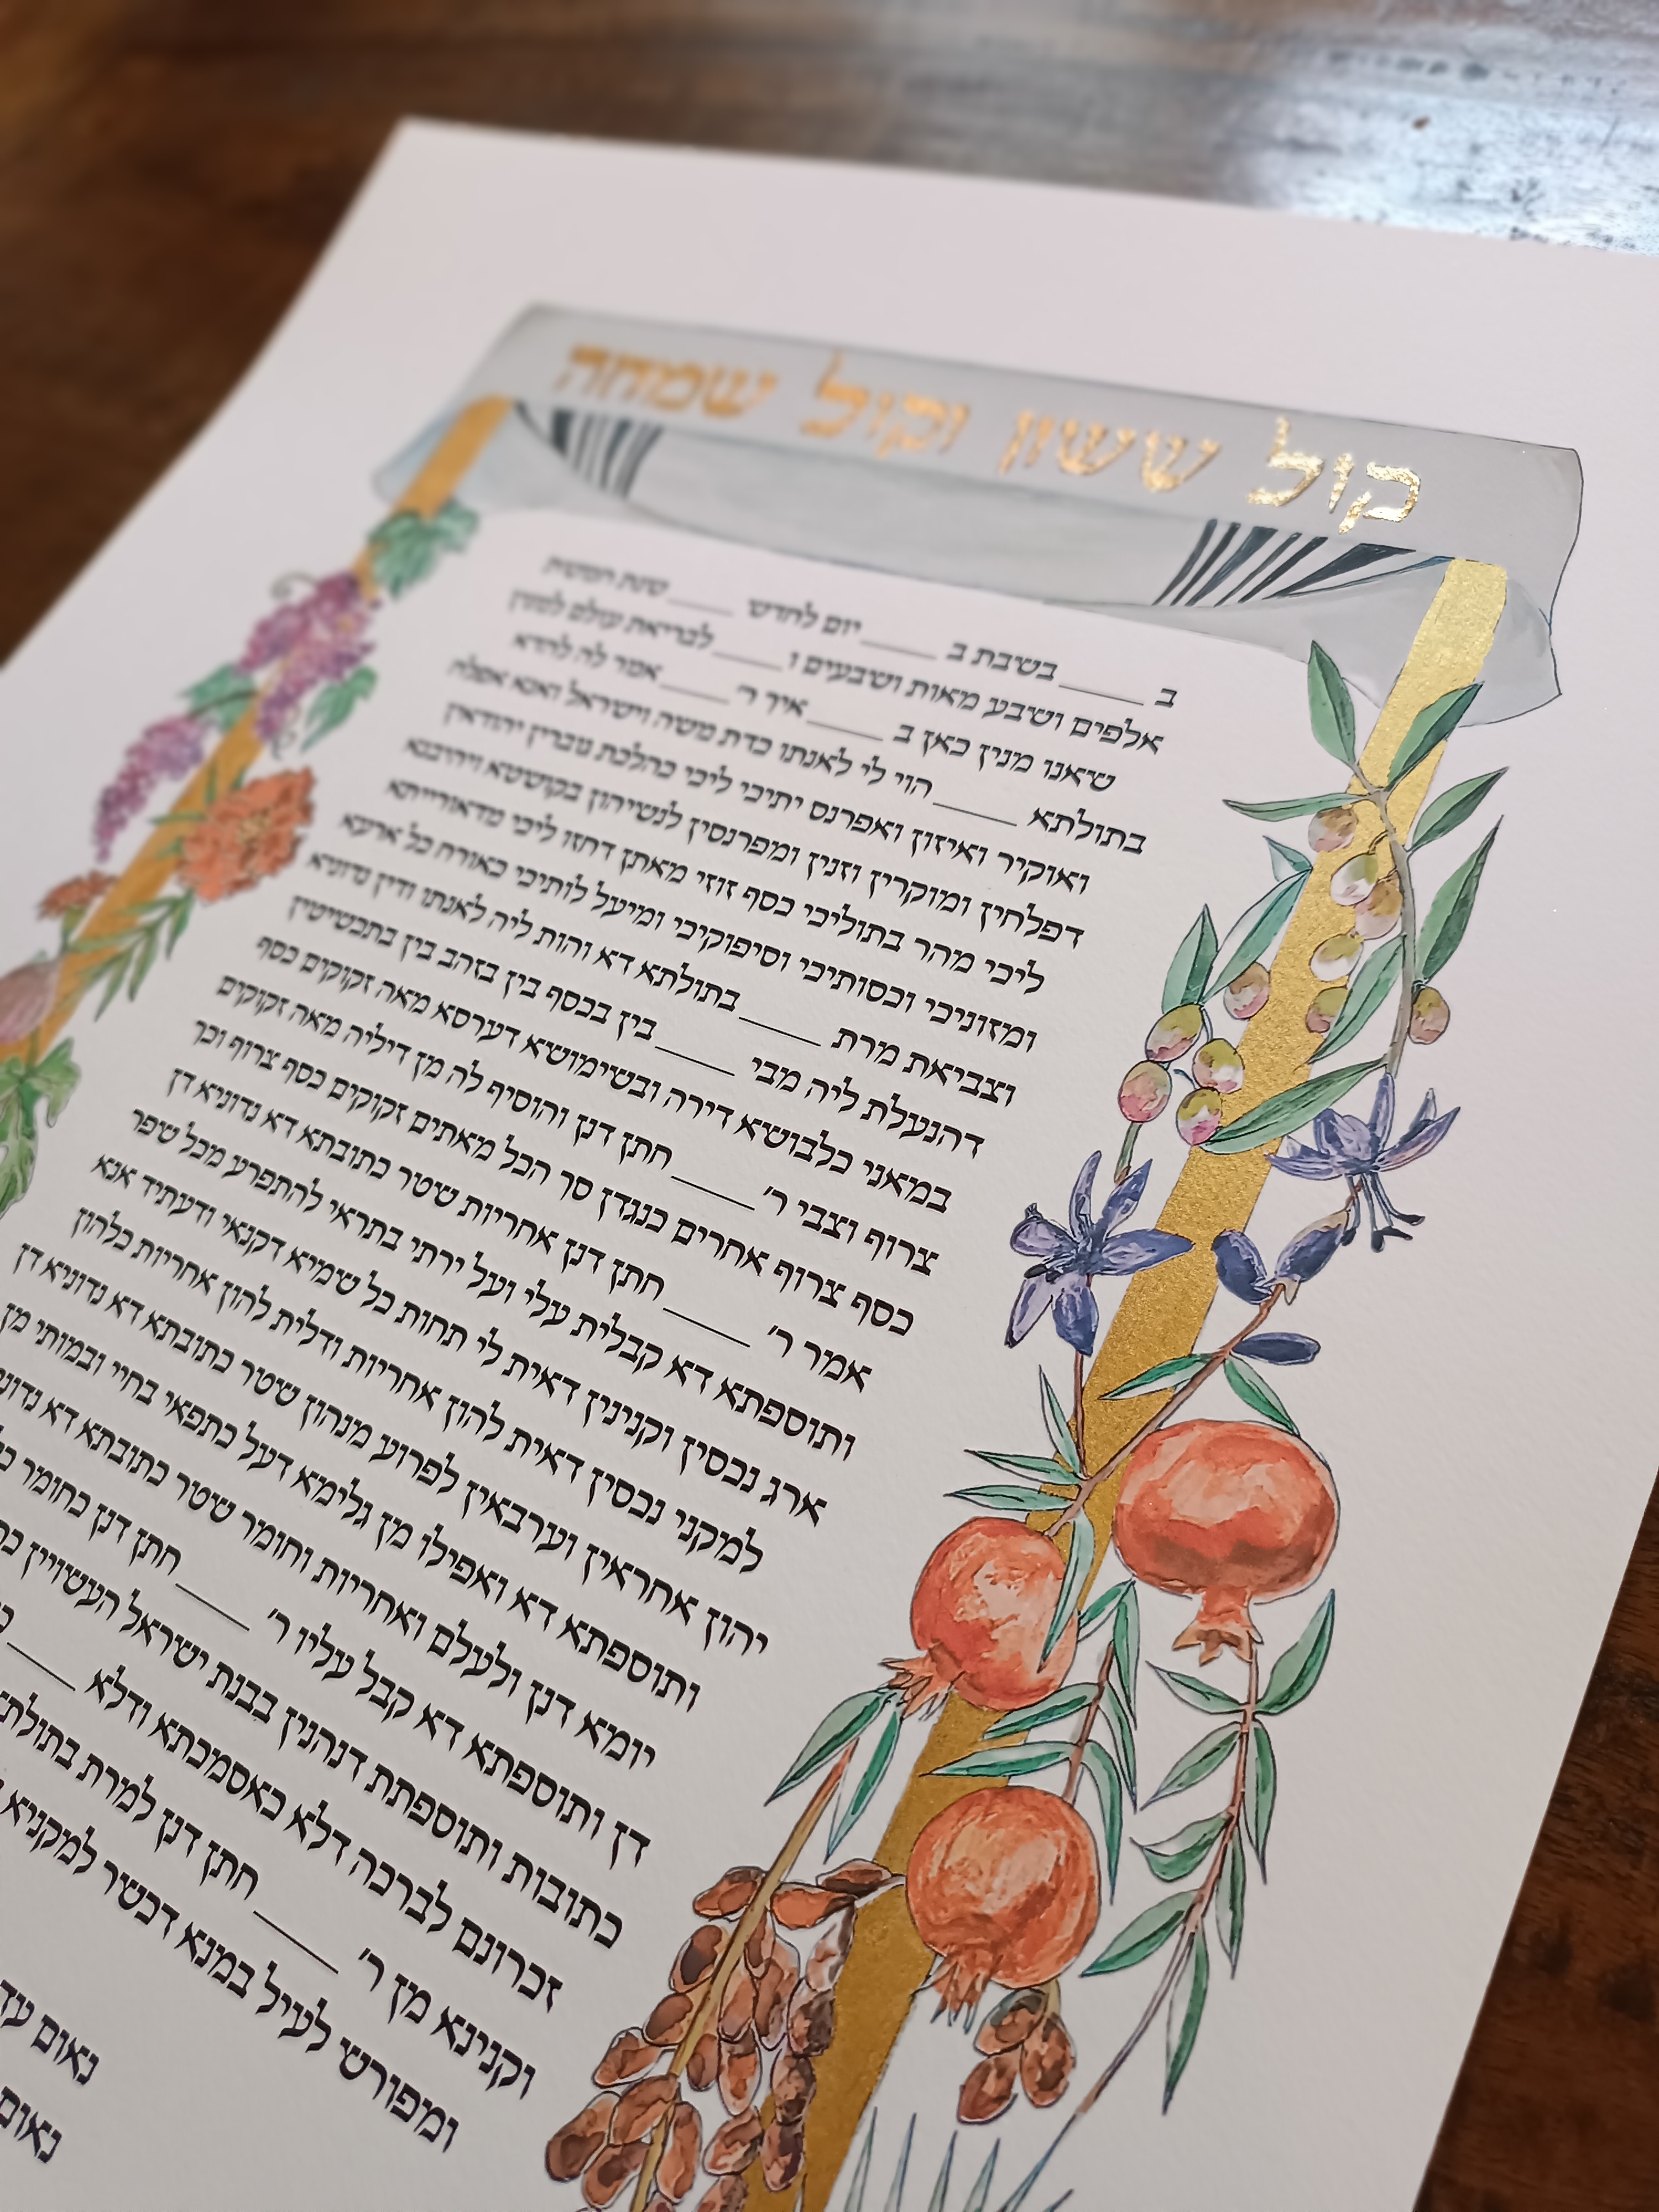 קול ששון וקול שמחה
ב _____ בשבת ב _____ יום לחדש _____ שנת חמשת
אלפים ושבע מאות ושבעים ו _____ לבריאת עולם למנין
שאנו מנין כאן ב _____ איך ר' _____ אמר לה להדא
בתולתא _____ הוי לי לאנתו כדת משה וישראל ואנא אפלח
ואוקיר ואיזון ואפרנס יתיכי ליכי כהלכת גוברין יהודאין
דפלחין ומוקרין וזנין ומפרנסין לנשיהון בקושטא ויהיבנא
ליכי מהר בתוליכי כסף זוזי מאתן דחזו ליכי מדאורייתא
ומזוניכי וכסותיכי וסיפוקיכי ומיעל לותיכי כאורח כל ארעא
וצביאת מרת _____ בתולתא דא והות ליה לאנתו ודין נדוניא
דהנעלת ליה מבי _____ בין בכסף בין בזהב בין בתכשיטין
במאני כלבושא דירה ובשימושא דערסא מאה זקוקים כסף
צרוף וצבי ר' _____ חתן דנן והוסיף לה מן דיליה מאה זקוקים
כסף צרוף אחרים כנגדן סך הכל מאתים זקוקים כסף צרוף וכך
אמר ר' _____ חתן דנן אחריות שטר כתובתא דא נדוניא דן
ותוספתא דא קבלית עלי ועל ירתי בתראי להתפרע מכל שפר
ארג נכסין וקנינין דאית לי תחות כל שמיא דקנאי ודעתיד אנא
למקני נכסין דאית להון אחריות ודלית להון אחריות כלהון
יהון אחראין וערבאין לפרוע מנהון שטר כתובתא דא נדוניא דן
ותוספתא דא ואפילו מן גלימא דעל כתפאי בחיי ובמותי מן
יומא דנן ולעלם ואחריות וחומר שטר כתובתא דא
דן ותוספתא דא קבל עליו ר' _____ חתן דנן כחומר
כתובות ותוספתת דנהגין בבנת ישראל העשויין
זכרונם לברכה דלא כאסמכתא ודלא _____
וקנינא מן ר' _____ חתן דנן למרת
ומפורש לעיל במנא דכשר למקניא
נאום
נאום